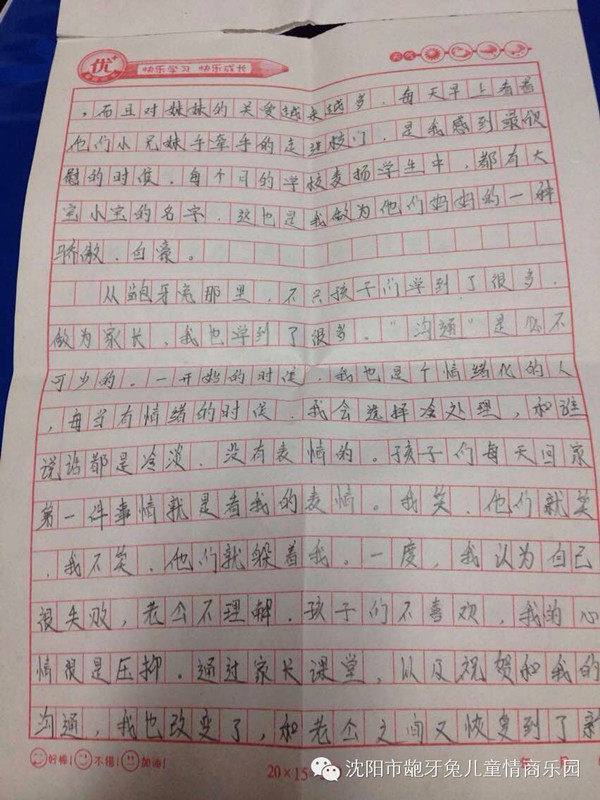 优
快乐学习 快乐成长
天气
，而且对妹妹的关爱越来越多，每天早上看着
他们小兄妹手牵手的走进校门，是我感到最欣
慰的时候，每个月的学校表扬学生中，都有大
宝小宝的名字，这也是我做为他们妈妈的一种
骄傲、自豪。
从龅牙兔那里，不只孩子们学到了很多，
做为家长，我也学到了很多。“沟通”是必不
可少的。一开始的时候，我也是个情绪化的人
，每当有情绪的时候，我会选择冷处理，和谁
说话都是冷淡、没有表情的。孩子们每天回家
第一件事情就是看我的表情。我笑，他们就笑
，我不笑，他们就躲着我。一度，我认为自己
很失败，老公不理解，孩子们不喜欢，我的心
情很是压抑，通过家长课堂，以及祝贺和我的
沟通，我也改变了，和老公之间又恢复到了新
好棒！ 不错！ 加油！
20×15
沈阳市龅牙兔儿童情商乐园